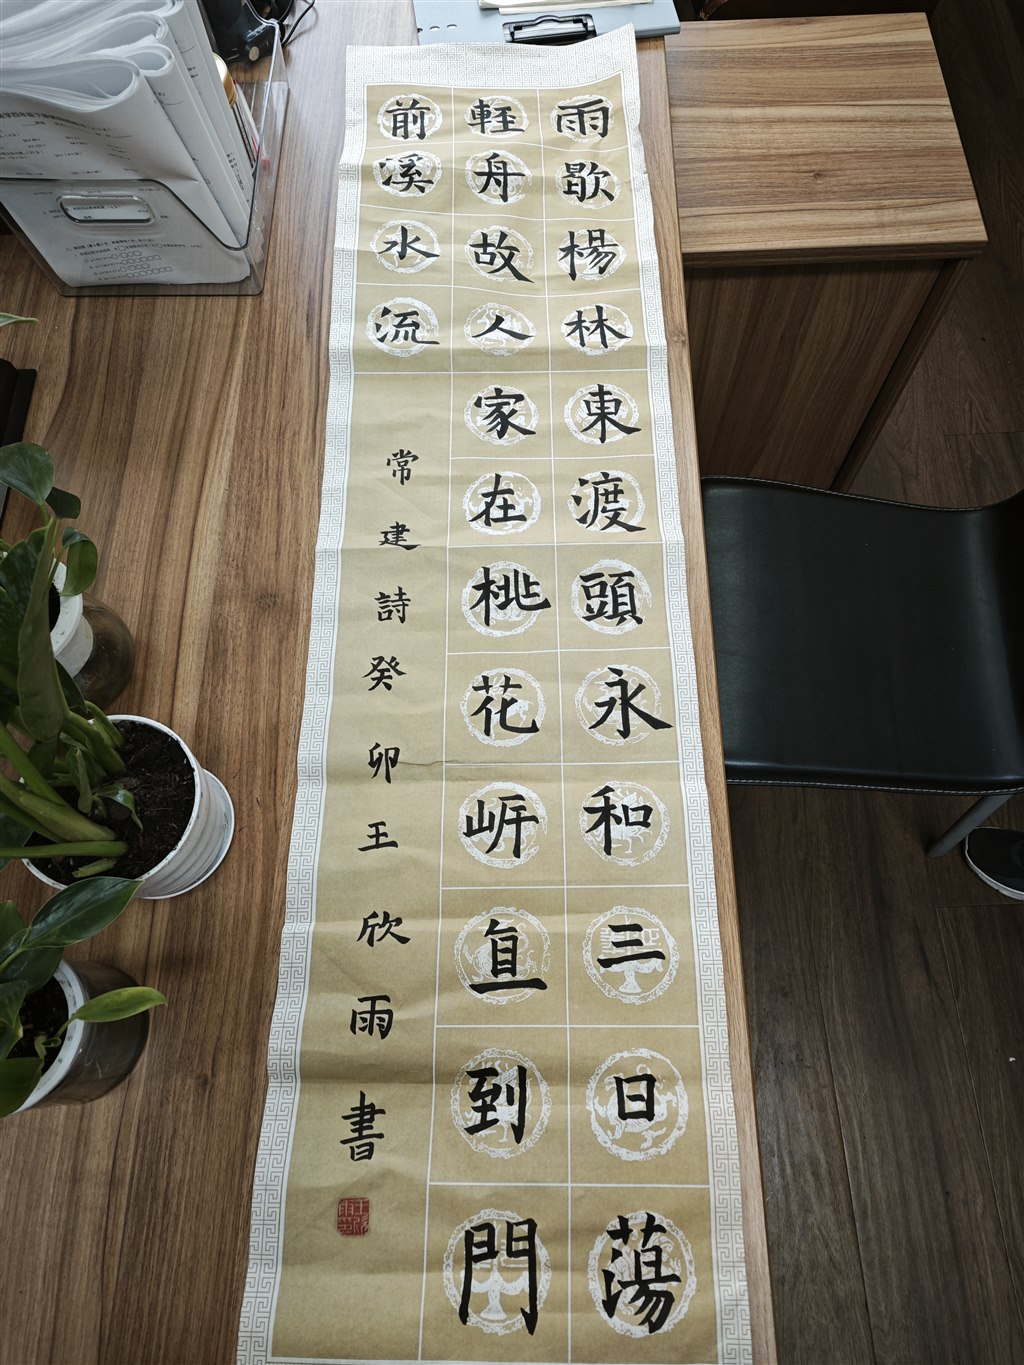 雨歇楊林東渡頭永和三日蕩
輕舟故人家在桃花岍直到門
前溪水流
常建詩癸卯王欣雨書